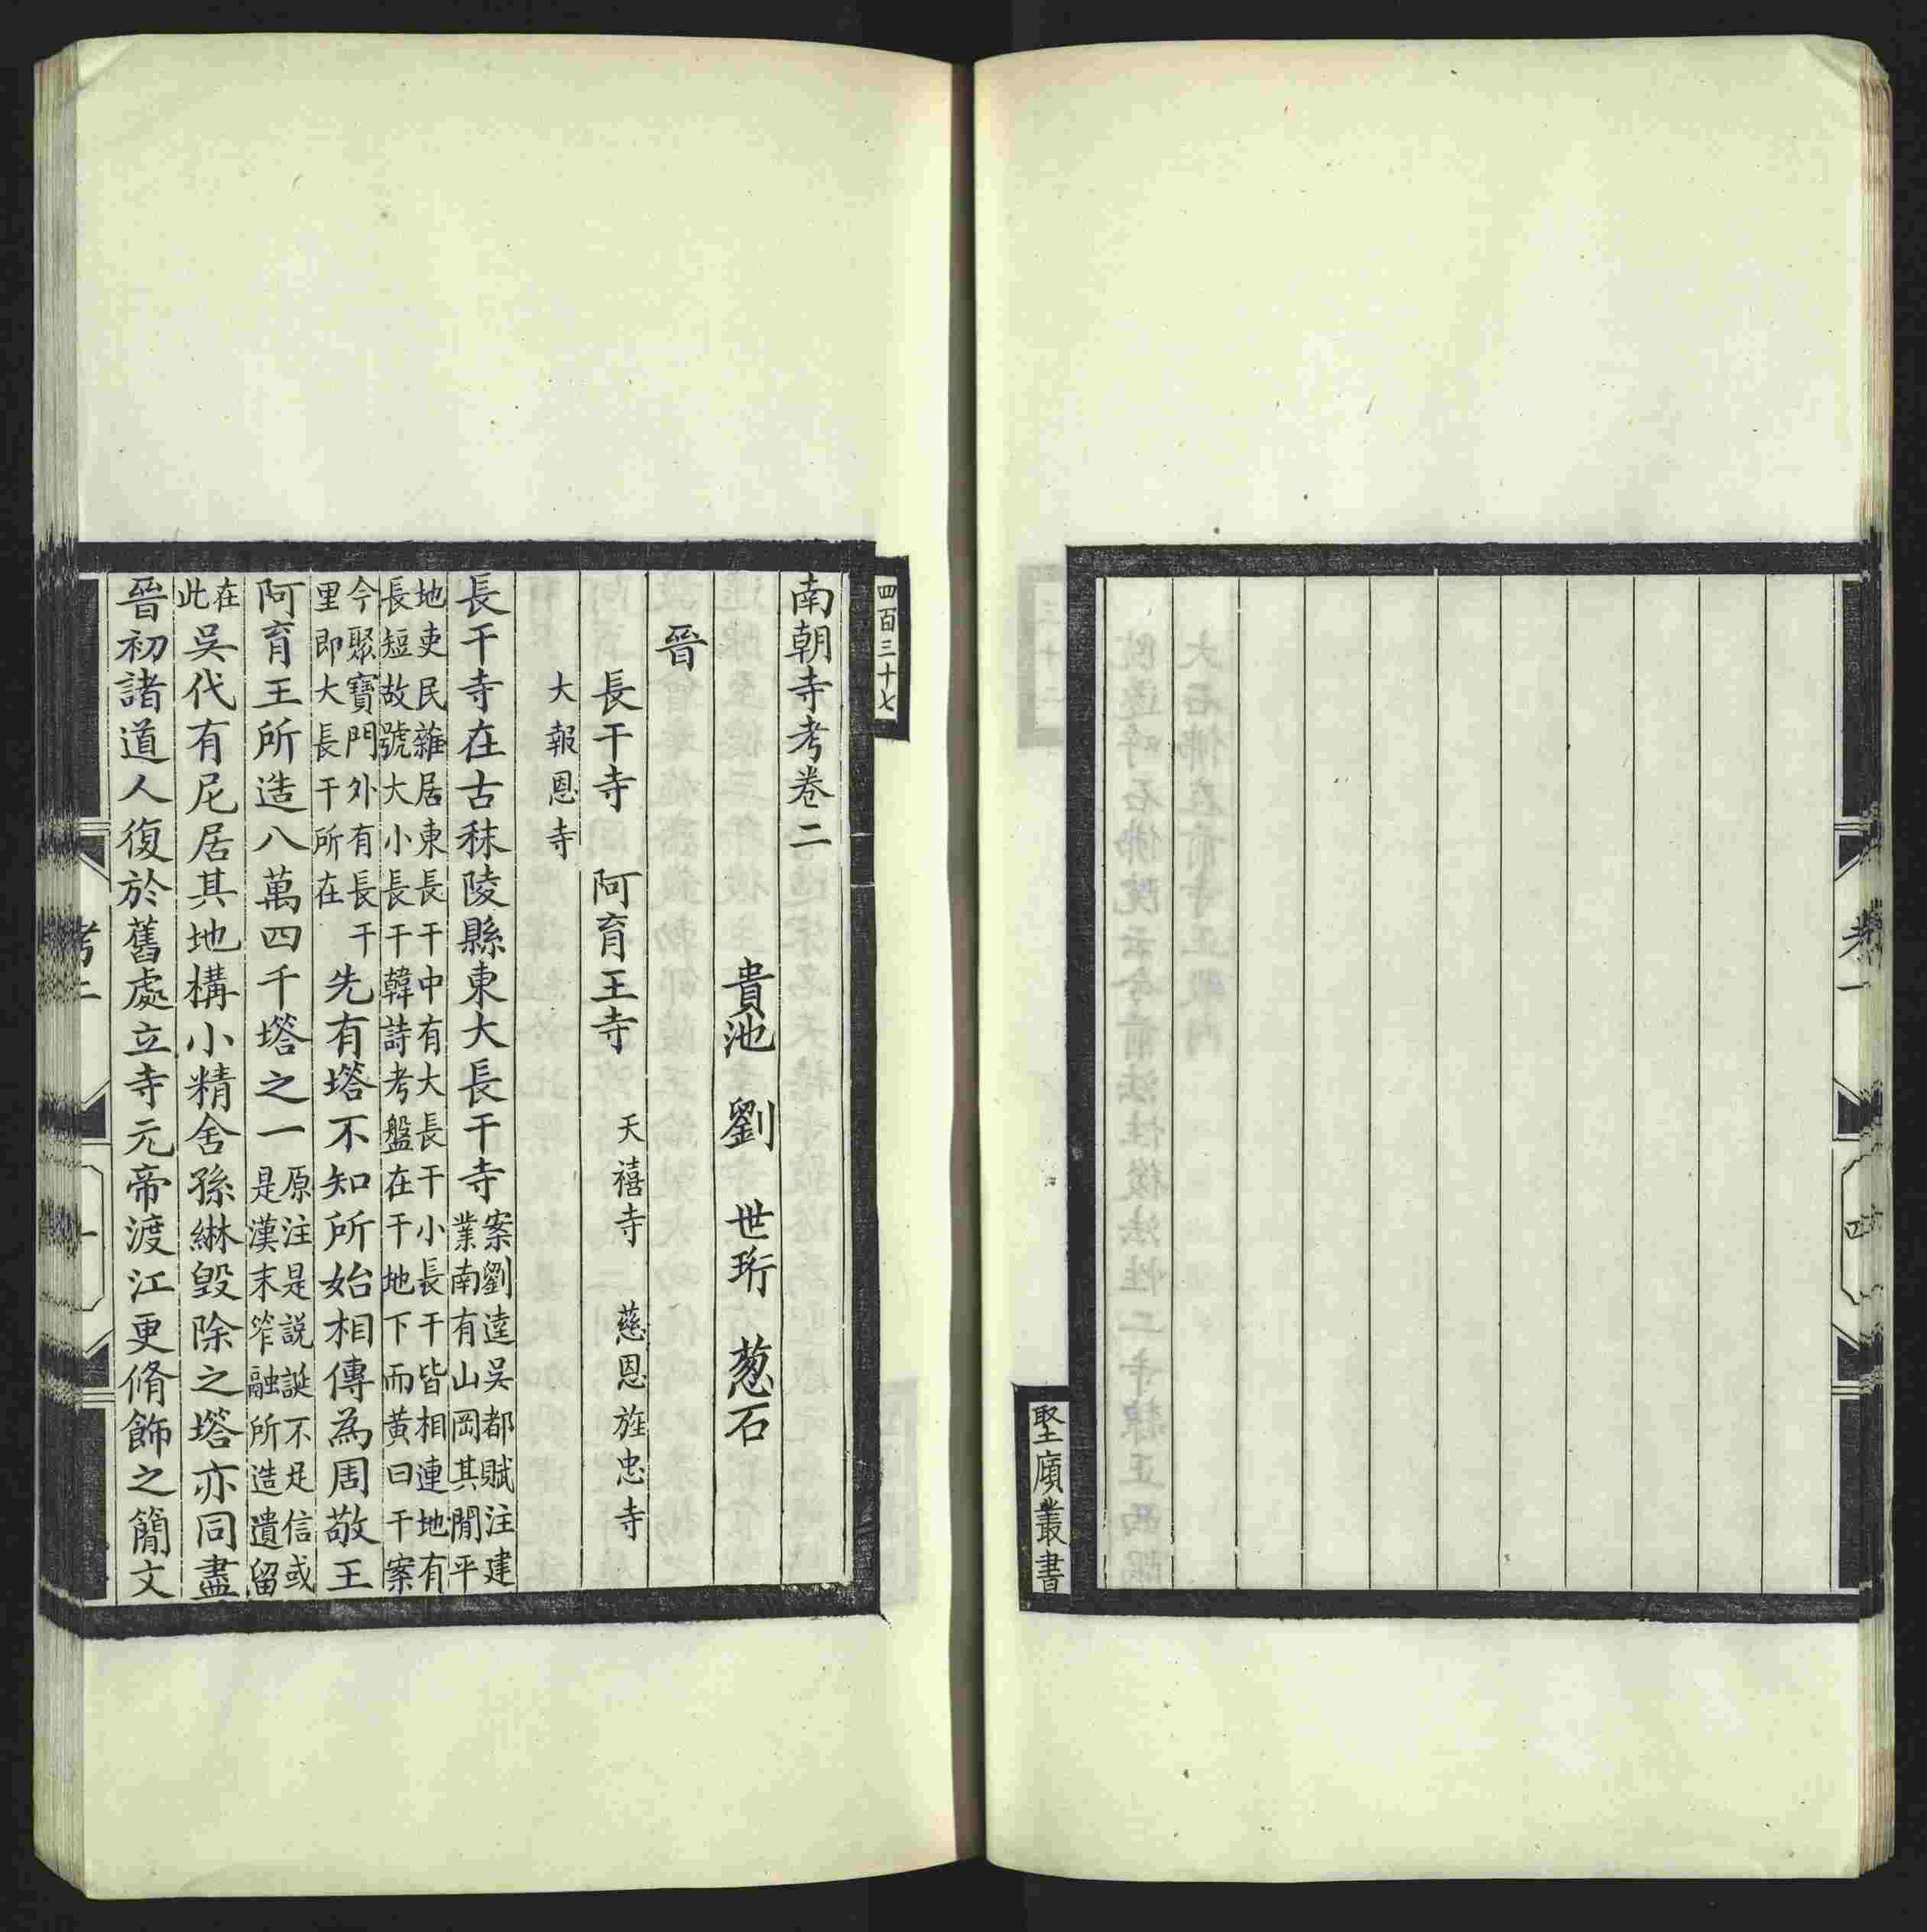 堅廎叢書
四百三十七
南朝寺考卷二
貴池 劉 世珩 蔥石
晉
長干寺 阿育王寺 天禧寺 慈恩旌忠寺
大報恩寺
長干寺在古秣陵縣東大長干寺案劉逵吳都賦注建業南有山岡其閒平
地吏民雜居東長干中有大長干小長干皆相連地有長短故號大小長干韓詩考盤在干地下而黃曰干案
今聚寶門外有長干里即大長干所在先有塔不知所始相傳為周敬王
阿育王所造八萬四千塔之一原注是說誕不足信或是漢末笮融所造遺留
在此吳代有尼居其地構小精舍孫綝毀除之塔亦同盡
晉初諸道人復於舊處立寺元帝渡江更脩飾之簡文
考二
一
考一
四